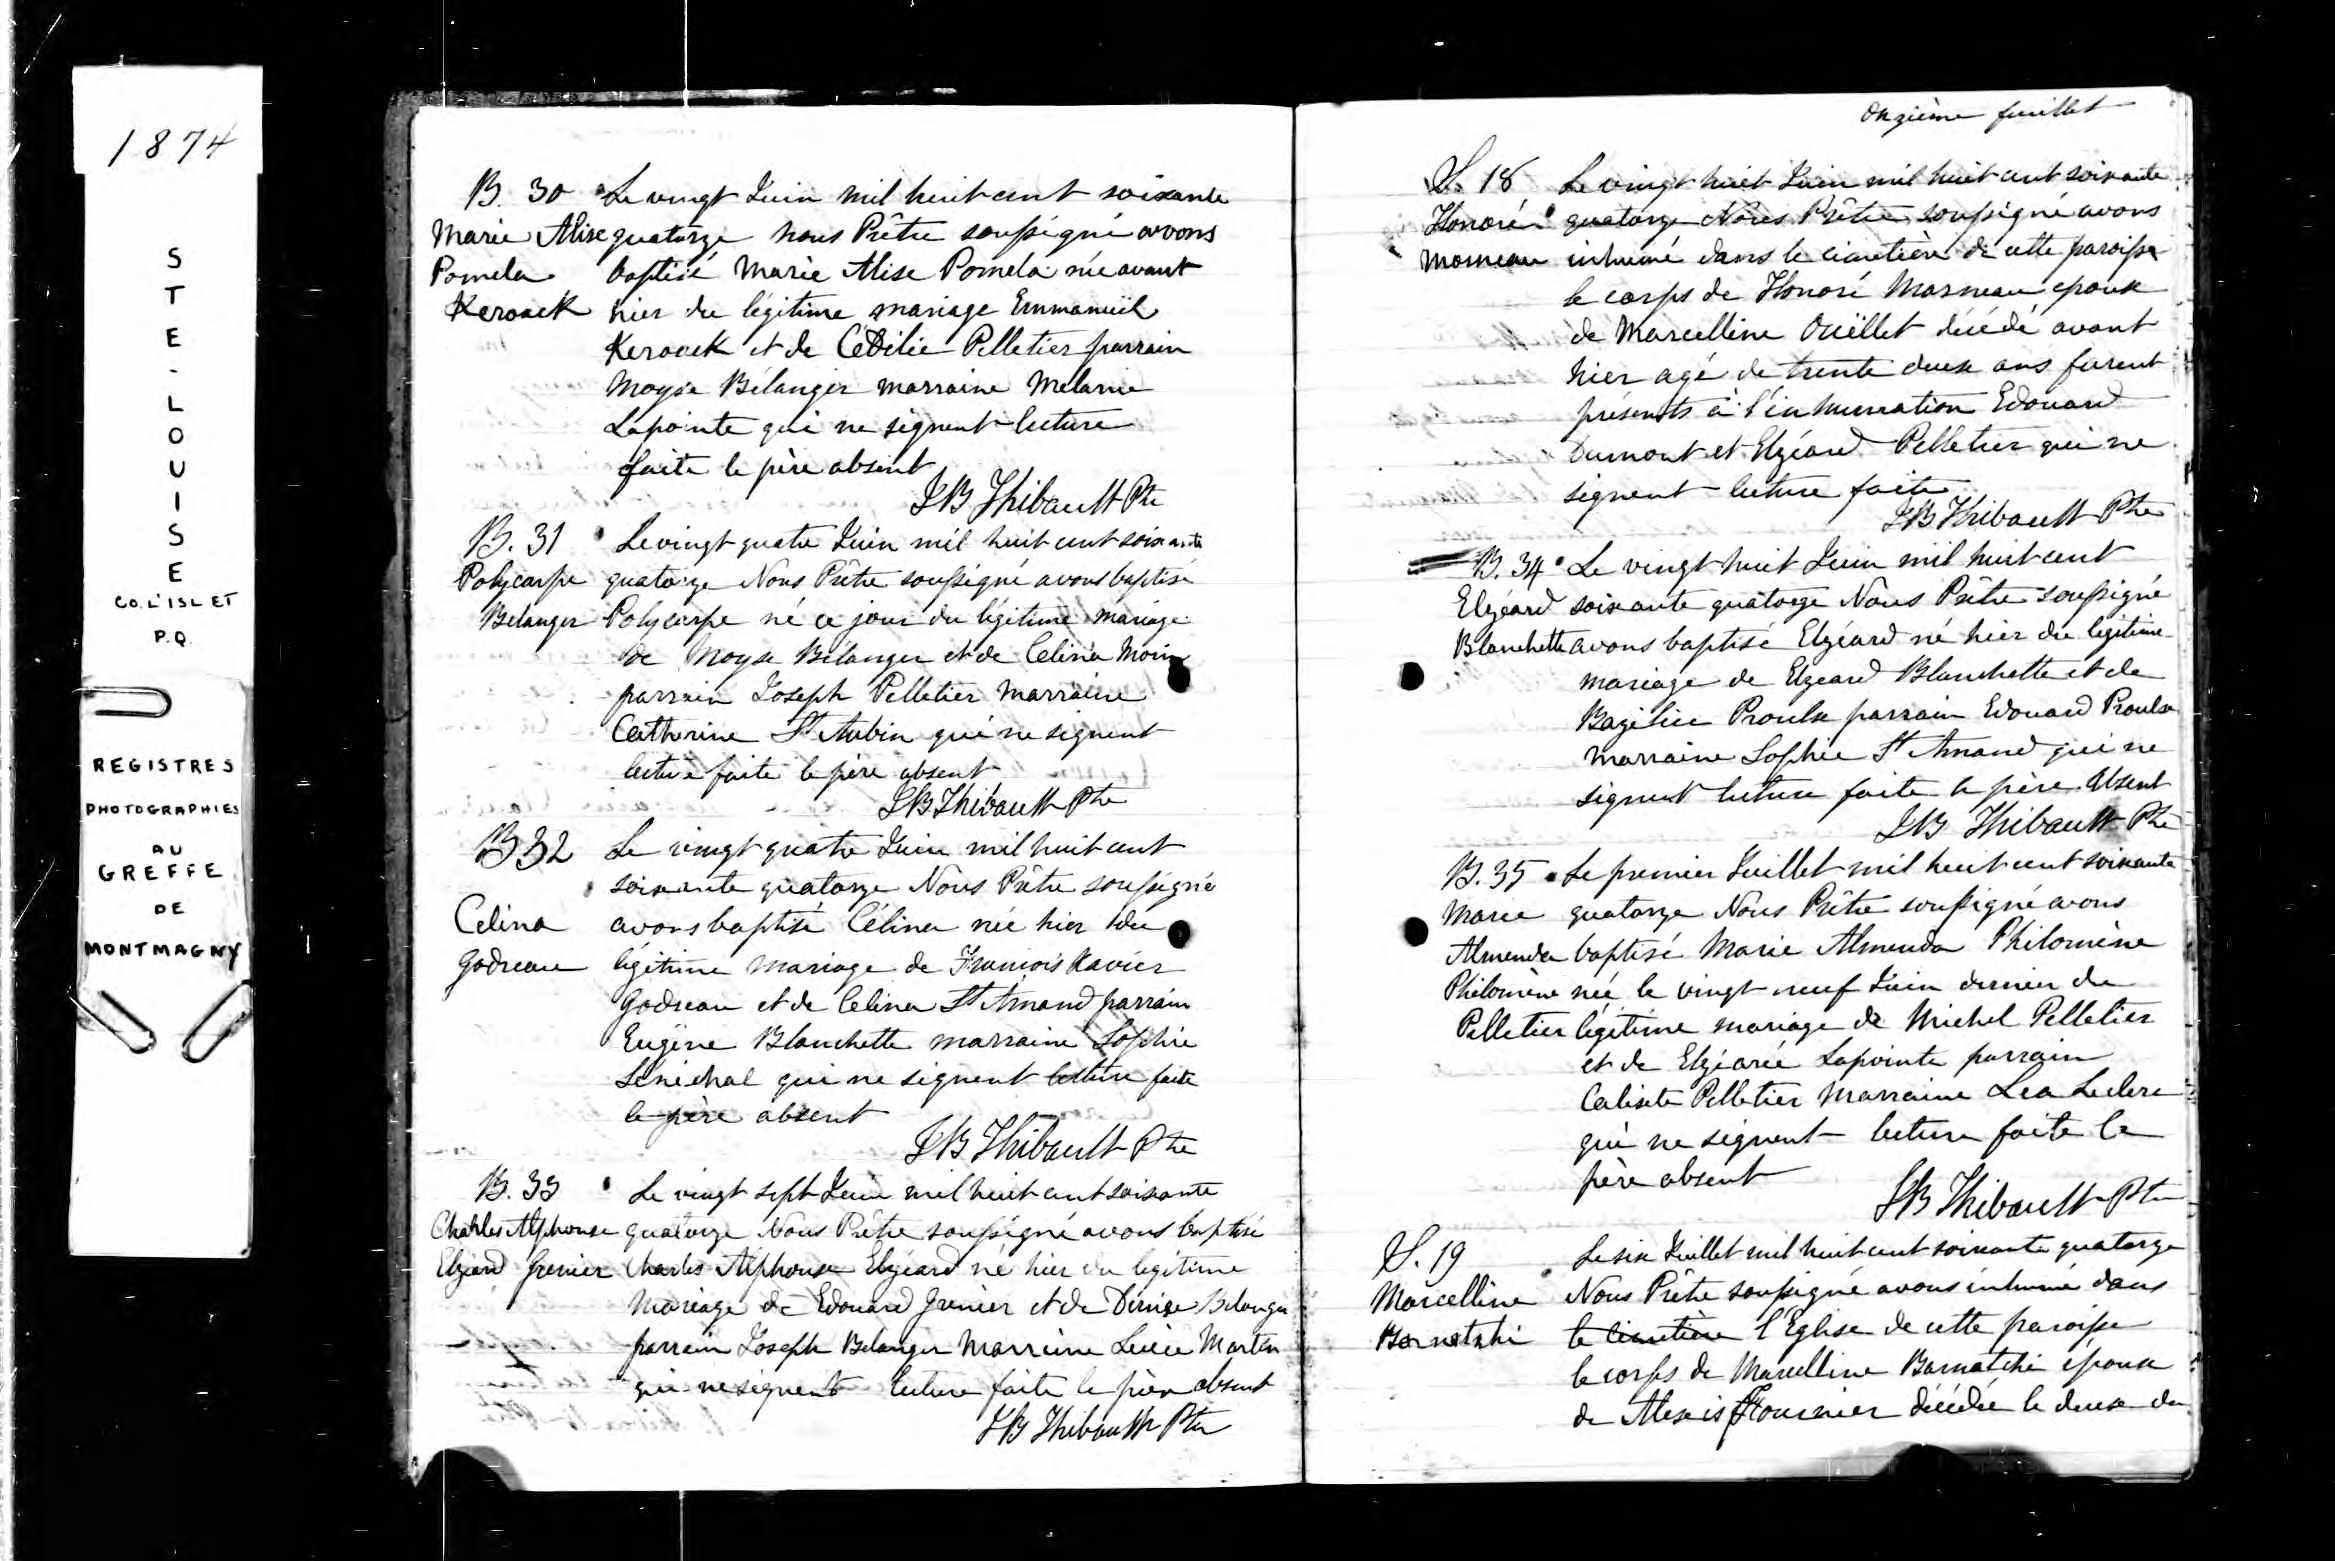 1874
STE-LOUISE
CO. L'ISLET
P.Q.
REGISTRES
PHOTOGRAPHIES
AU
GREFFE
DE
MONTMAGNY
B. 30 Le vingt Juin mil huit cent soixante
Marie Alise quatorze nous Prêtre soussigné avons
Pomela baptisé Marie Alise Pomela née avant
Kerouck hier du légitime mariage Emmanuël
Kerouck et de Cédilie Pelletier parrain
Moyse Bélanger marraine Melanie
Lapointe qui ne signent lecture
faite le père absent
JB Thibault Ptre
B. 31 Le vingt quatre Juin mil huit cent soixante
Polycarpe quatorze Nous Prêtre soussigné avons baptisé
Belanger Polycarpe né ce jour du légitime mariage
de Moyse Bélanger et de Celina Morin
parrain Joseph Pelletier Marraine
Catherine St Aubin qui ne signent
lecture faite le père absent
JB Thibault Ptre
B 32 Le vingt quatre Juin mil huit cent
soixante quatorze Nous Prêtre soussigné
Celina avons baptisé Célina née hier du
Godreau légitime mariage de François Xavier
Godreau et de Celina St Amand parrain
Eugène Blanchette marraine Sophie
Sénéchal qui ne signent lecture faite
le père absent
JB Thibault Ptre
B. 33 Le vingt sept Juin mil huit cent soixante
Charles Alphonse quatorze Nous Prêtre soussigné avons baptisé
Elzéard Grenier Charles Alphonse Elzéard né hier du légitime
mariage de Edouard Grenier et de Denise Belanger
parrain Joseph Belanger Marraine Lucie Martin
qui ne signent lecture faite le père absent
JB Thibault Ptre
Onzième feuillet
S. 18 Le vingt huit Juin mil huit cent soixante
Honoré quatorze Nous Prêtre soussigné avons
Morneau inhumé dans le cimetière de cette paroisse
le corps de Honoré Morneau époux
de Marcelline Ouëllet décédé avant
hier agé de trente deux ans furent
présents à l'inhumation Edouard
Dumont et Elzéard Pelletier qui ne
signent lecture faite
JB Thibault Ptre
B. 34 Le vingt huit Juin mil huit cent
Elzéard soixante quatorze Nous Prêtre soussigné
Blanchette avons baptisé Elzéard né hier du légitime
mariage de Elzeard Blanchette et de
Bazilice Proulx parrain Edouard Proulx
marraine Sophie St Amand qui ne
signent lecture faite le père Absent
JB Thibault Ptre
B. 35 Le premier Juillet mil huit cent soixante
Marie quatorze Nous Prêtre soussigné avons
Almenda baptisé Marie Almenda Philomène
Philomène née le vingt neuf Juin dernier du
Pelletier légitime mariage de Michel Pelletier
et de Elzéarée Lapointe parrain
Calixte Pelletier Marraine Lea Leclerc
qui ne signent lecture faite le
père absent
JB Thibault Ptre
S. 19 Le six Juillet mil huit cent soixante quatorze
Marcelline Nous Prêtre soussigné avons inhumé dans
Barnatchi le cimetière l'Eglise de cette paroisse
le corps de Marcelline Barnatchi épouse
de Alexis Fournier décédée le deux du